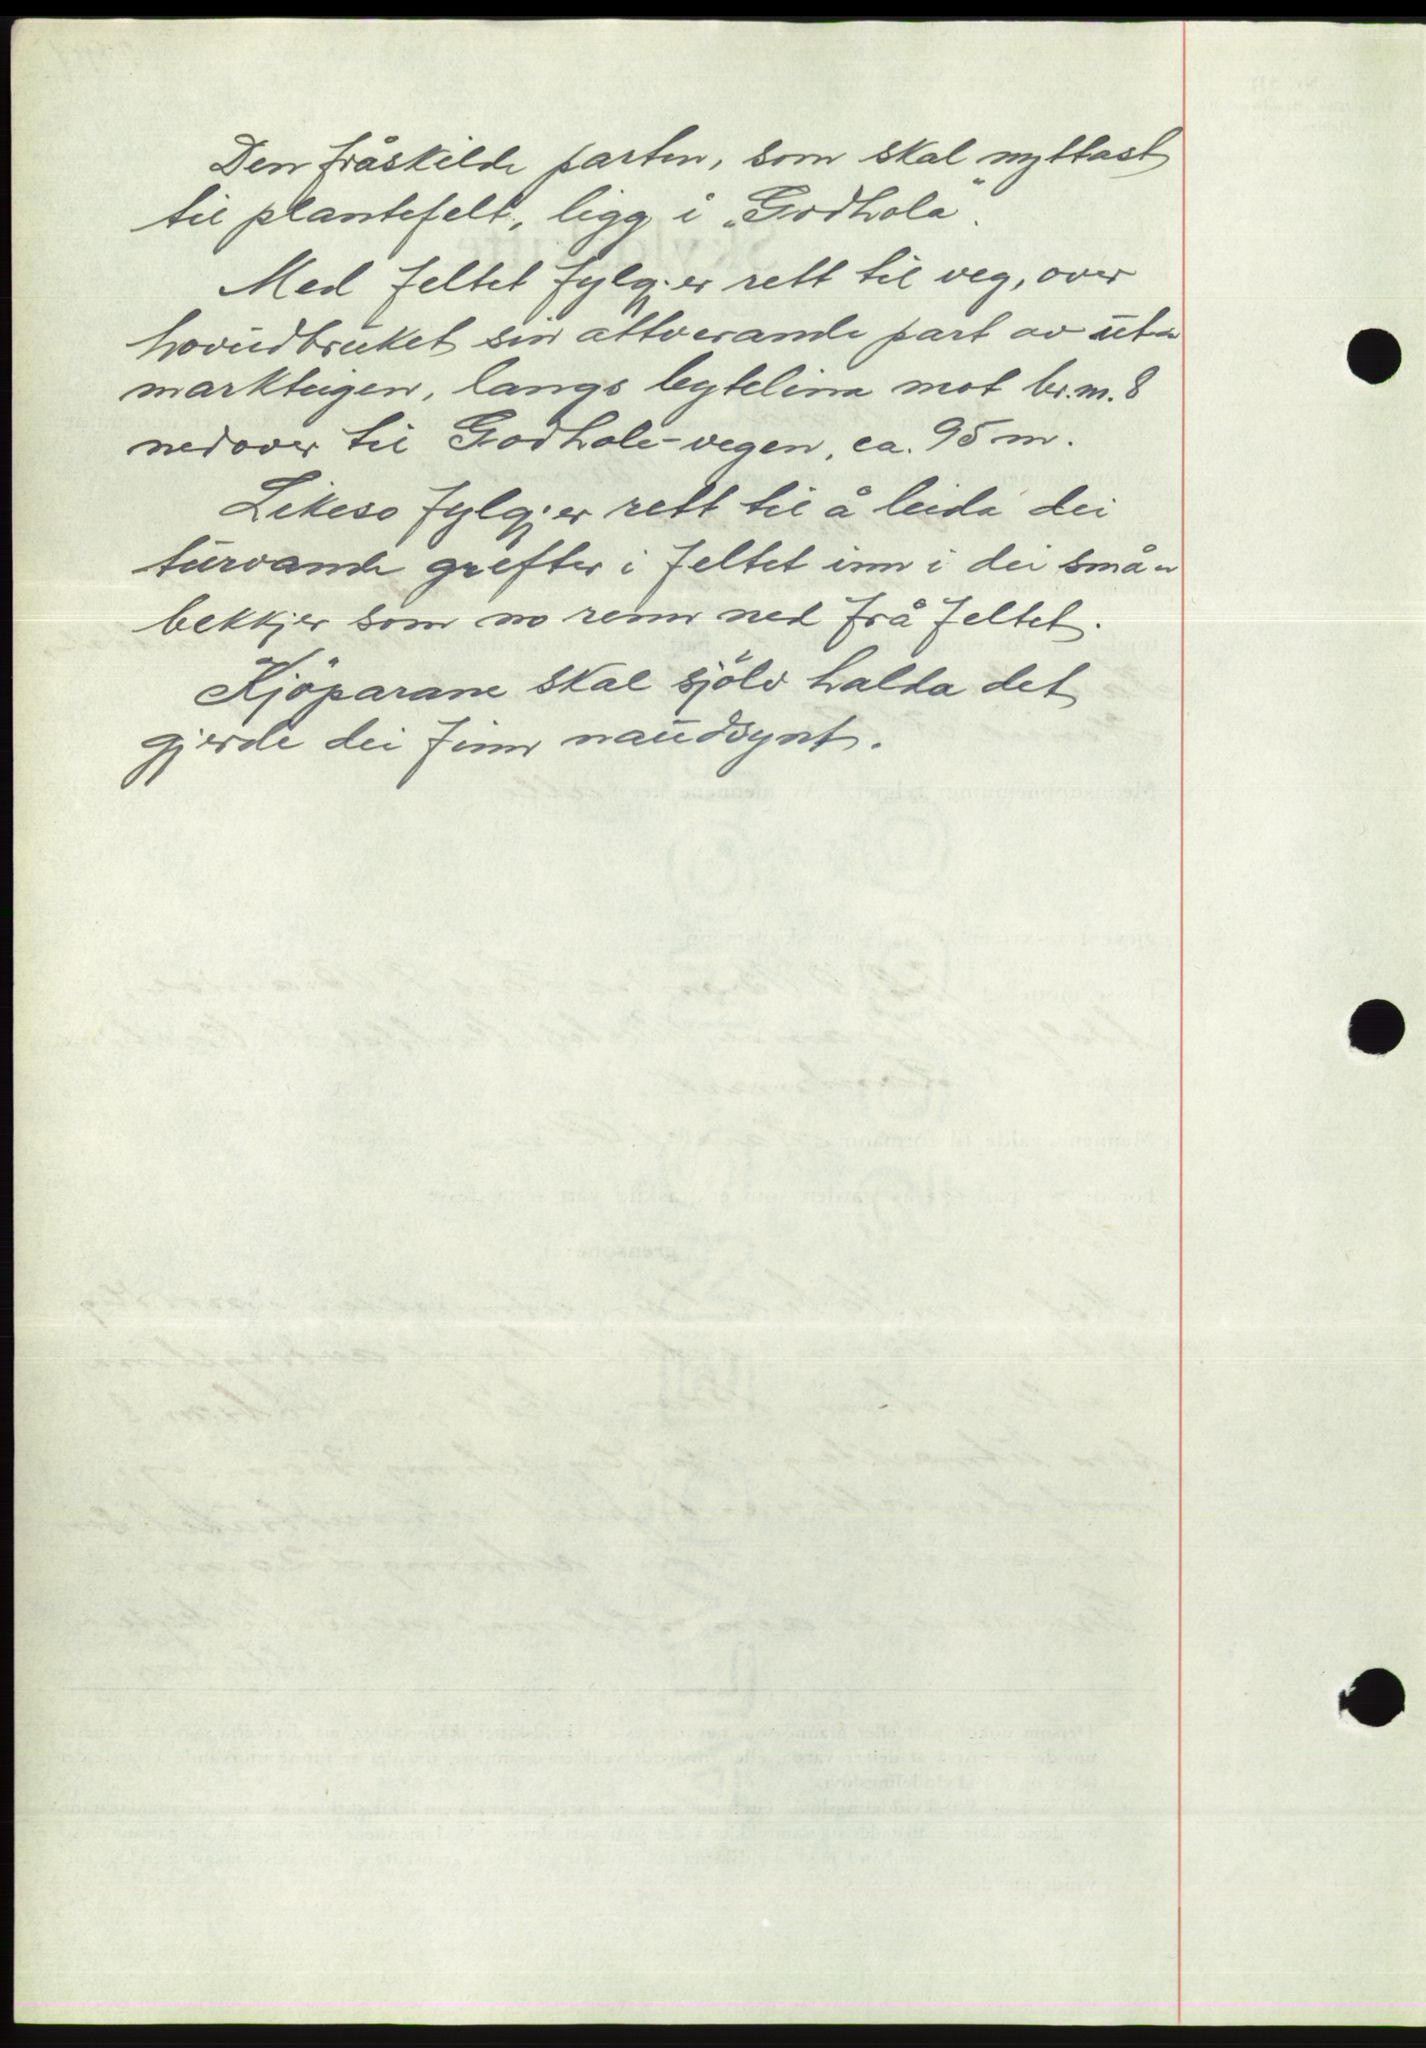 Den fråskilde parten, som skal nyttast
til plantefelt, ligg i „Godhola".
Med feltet fylgjer rett til veg, over
hovudbruket sin attverande part av ut-
markteigen, langs bytelina mot br.nr. 8
nedover til Godhole-vegen, ca. 95 m.
Likeso fylgjer rett til å leida dei
turvande grefter i feltet inn i dei små-
bekkjer som no renn ned frå feltet.
Kjöparane skal sjölv halda det
gjerde dei finn naudsynt.